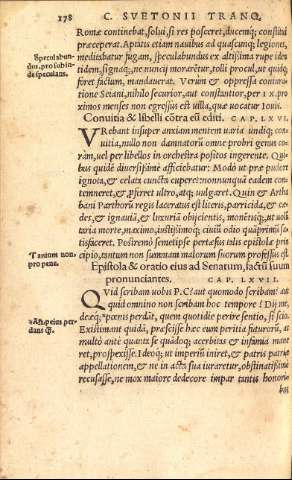 178 C. SVETONII TRANQ.
Romæ continebat, solui, si res posceret, ducemq; constitui
præceperat. Aptatis etiam nauibus ad quascunq; legiones,
meditabatur fugam, speculabundus ex altissima rupe iden
tidem, signaq;, ne nuncij morarētur, tolli procul, ut quidq;
foret factum, mandauerat. Verùm & oppressa coniura
tione Seiani, nihilo securior, aut constantior, per IX pro
ximos menses non egressus est uilla, quæ uocatur Iouis.
Speculabun
dus, pro subin
de speculans.
Conuitia & libelli cōtra eū editi. CAP. LXVI.
VRebant insuper anxiam mentem uaria undiq; con
uitia, nullo non damnatorū omne probri genus co
ram, uel per libellos in orchestra positos ingerente. Qui
bus quidē diuersissimè afficiebatur: Modò ut præ pudore
ignota, & celata cuncta cuperet: nonnunquā eadem con
temneret, & pferret ultro, atq; uulgaret. Quin & Artha
bani Parthorū regis laceratus est literis, parricidia, & cæ
des, & ignauiā, & luxuriā obijcientis, monētisq;, ut uolū
taria morte, maximo, iustissimoq; ciuiū odio quàprimū sa
tisfaceret. Postremò semetipse pertæsus talis epistolæ prin
cipio, tantum non summam malorum suorum professus est.
Tantum non
pro pene.
Epistola & oratio eius ad Senatum, factū suum
pronunciantes. CAP. LXVII.
QVid scribam uobis P.C? aut quomodo scribam? aut
quid omnino non scribam hoc tempore? Dij me,
deæq; peius perdāt, quàm quotidie perire sentio, si scio.
Existimant quidā, præscisse hæc eum peritia futurorū, ac
multò antè quanta se quādoq; acerbitas & infamia mane
ret, prospexisse. Ideoq; ut imperiū inierit, & patris patriæ
appellationem, & ne in acta sua iuraretur, obstinatissimè
recusasse, ne mox maiore dedecore impar tantis honori
bus